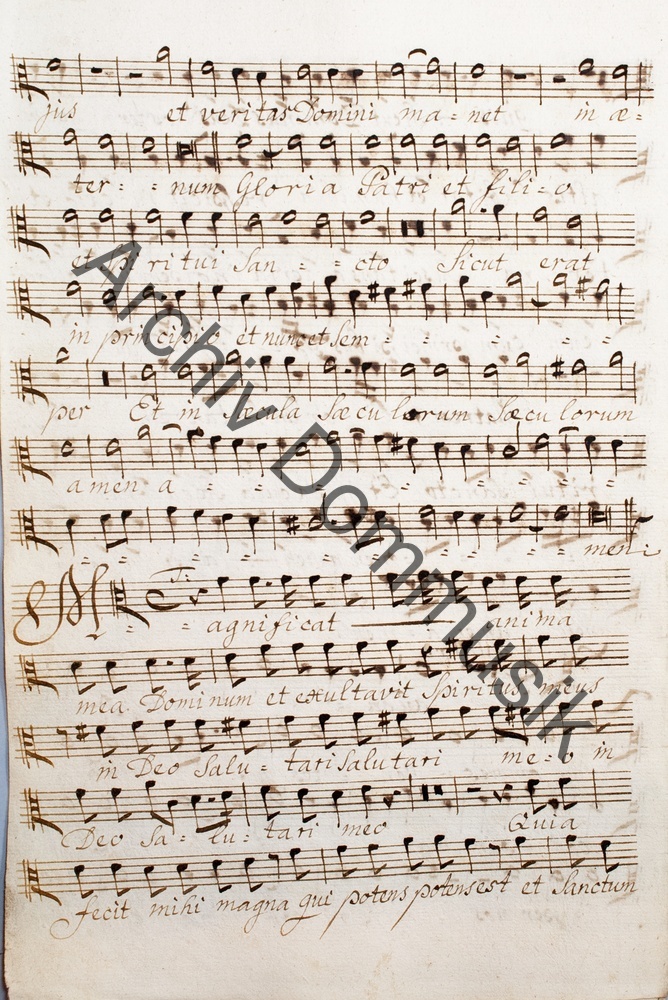 jus et veritas Domini ma = net in æ =
ter = = num Gloria Patri et fili = o
et Spiritui San = = cto Sicut erat
in principio et nunc et sem = = = = = =
per Et in Sæcula Sæculorum Sæculorum
amen a = = = = = =
= = = = = = = men
M = = agnificat anima
mea Dominum et exultavit Spiritus meus
in Deo Salu = tari Salutari me = o in
Deo Sa = lu = tari meo Quia
fecit mihi magna qui potens potens est et Sanctum
Archiv Dommusik